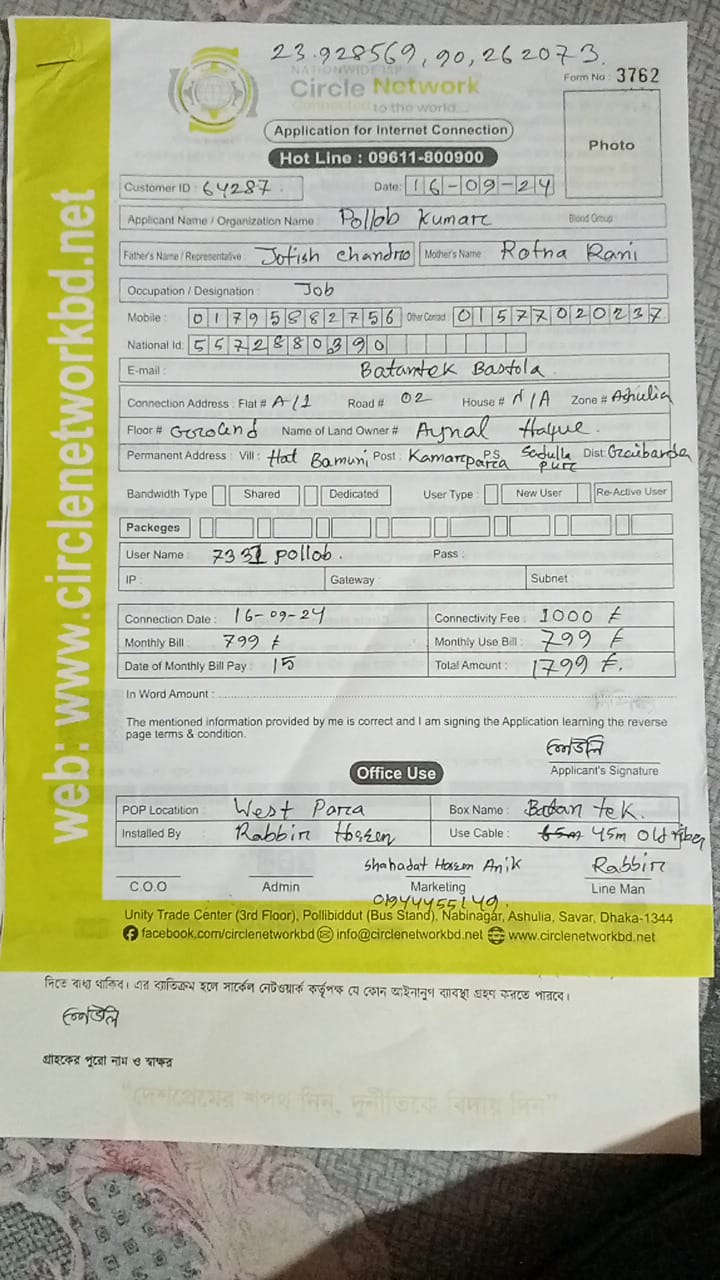 23.928569, 90,262073.
NATIONWIDE ISP
Circle Network
Connected to the world...
Form No : 3762
Application for Internet Connection
Hot Line : 09611-800900
Photo
Customer ID : 64287. Date: 16-09-24
Applicant Name / Organization Name : Pollob Kumarc Blood Group :
Father's Name / Representative : Jotish Chandro Mother's Name : Rotna Rani
Occupation / Designation : Job
Mobile : 01795882756 Other Contact : 01577020237
National Id: 5572880390
E-mail : Batantek Bastola
Connection Address : Flat # A/1 Road # 02 House # N/A Zone # Ashulia
Floor # Goround Name of Land Owner # Aynal Haque.
Permanent Address : Vill : Hat Bamuni Post : Kamarcparca P.S Sadulla purc Dist: Gaibanda
Bandwidth Type Shared Dedicated User Type : New User Re-Active User
Packeges
User Name : 7331 pollob. Pass :
IP : Gateway : Subnet
Connection Date : 16-09-24 Connectivity Fee : 1000 ৳
Monthly Bill : 799 ৳ Monthly Use Bill : 799 ৳
Date of Monthly Bill Pay : 15 Total Amount : 1799 ৳.
In Word Amount :
The mentioned information provided by me is correct and I am signing the Application learning the reverse
page terms & condition.
Applicant's Signature
Office Use
POP Locatition : West Parca Box Name : Batan tek.
Installed By : Rabbir Hosen Use Cable : 45m Old fiber
Shahadat Hosen Anik Rabbir
C.O.O Admin Marketing Line Man
01944455149.
Unity Trade Center (3rd Floor), Pollibiddut (Bus Stand), Nabinagar, Ashulia, Savar, Dhaka-1344
facebook.com/circlenetworkbd info@circlenetworkbd.net www.circlenetworkbd.net
web: www.circlenetworkbd.net
দিতে বাধ্য থাকিব। এর ব্যতিক্রম হলে সার্কেল নেটওয়ার্ক কর্তৃপক্ষ যে কোন আইনানুগ ব্যবস্থা গ্রহণ করতে পারবে।
গ্রাহকের পুরো নাম ও স্বাক্ষর
“দেশপ্রেমের শপথ নিন, দুর্নীতিকে বিদায় দিন”